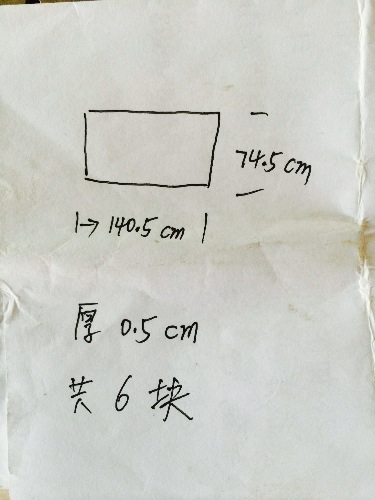 74.5 cm
140.5 cm
厚 0.5 cm
共 6 块